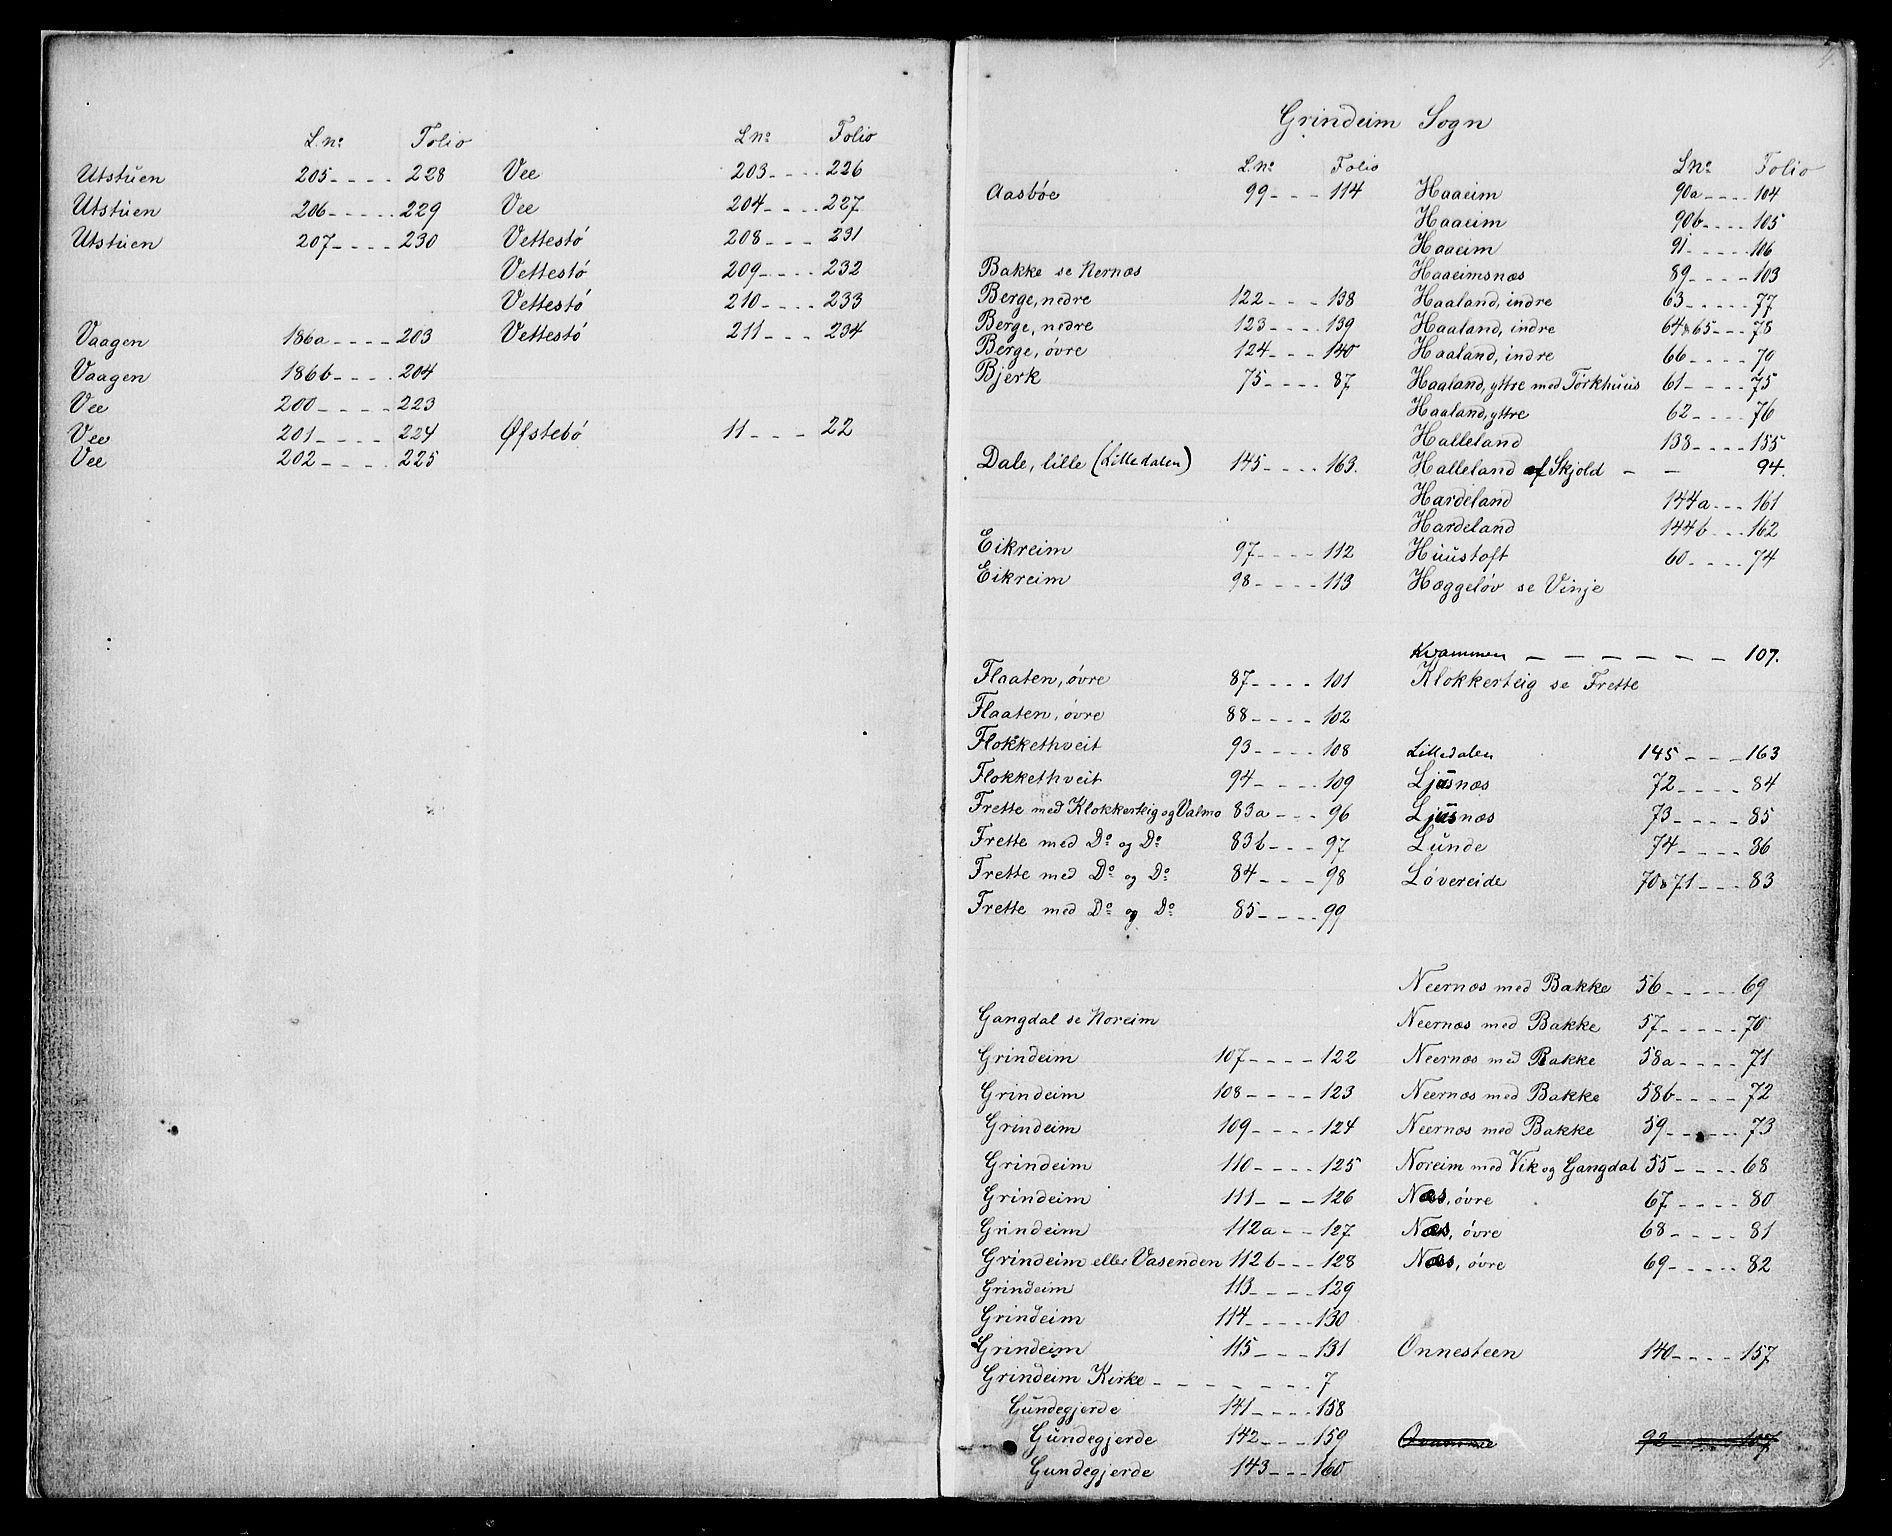 L.no Folio
Utstuen 205 - - - - 228
Utstuen 206 - - - - - 229
Utstuen 207 - - - - 230
Vaagen 186a - - - - 203
Vaagen 186b - - - - 204
Vee 200 - - - - 223
Vee 201 - - - - 224
Vee 202 - - - - 225
L.no Folio
Vee 203 - - - - 226
Vee 204 - - - - 227
Vettestö 208 - - - 231
Vettestö 209 - - - - 232
Vettestö 210 - - - - 233
Vettestö 211 - - - 234
Øfstebö 11 - - - 22
Grindeim Sogn
L.no Folio
Aasbøe 99 - - - 114
Bakke se Nernæs
Berge, nedre 122 - - - 138
Berge, nedre 123 - - - - 139
Berge, øvre 124 - - - 140
Bjerk 75 - - - - 87
Dale, lille (Lilledalen) 145 - - - - 163.
Eikreim 97 - - - - 112
Eikreim 98 - - - - 113
Flaaten, øvre 87 - - - - 101
Flaaten, øvre 88 - - - - 102
Flokkethveit 93 - - - - 108
Flokkethveit 94 - - - - 109
Frette med Klokkerteig og Valmo 83a - - - 96
Frette med Do og Do 83b - - - 97
Frette med Do og Do 84 - - - - 98
Frette med Do og Do 85 - - - - 99
Gangdal se Noreim
Grindeim 107 - - - - 122
Grindeim 108 - - - - 123
Grindeim 109 - - - - 124
Grindeim 110 - - - - 125
Grindeim 111 - - - 126
Grindeim 112a - - 127
Grindeim eller Vasenden 112b - - - 128
Grindeim 113 - - - - 129
Grindeim 114 - - - - - 130
Grindeim 115 - - - 131
Grindeim Kirke - - - - - - - 7
Gundegjerde 141 - - - - 158
Gundegjerde 142 - - - 159
Gundegjerde 143 - - - 160
L.no Folio
Haaeim 90a - - - - 104
Haaeim 90b - - - - 105
Haaeim 91 - - - - - 106
Haaeimsnæs 89 - - - - 103
Haaland, indre 63 - - - - - 77
Haaland, indre 64&65 - - - 78
Haaland, indre 66 - - - - 79
Haaland, yttre med Tørkhuus 61 - - - - 75
Haaland, yttre 62 - - - - 76
Halleland 138 - - - - 155
Halleland af Skjold - - 94.
Hardeland 144a - - - 161
Hardeland 144b - - - 162
Huustoft 60 - - - - 74
Hæggeløv se Vinje
Kvammen - - - - - - 107.
Klokkerteig se Frette
Lilledalen 145 - - - - 163
Ljusnæs 72 - - - - 84
Ljusnæs 73 - - - - 85
Lunde 74 - - - - - 86
Løvereide 70&71 - - - 83
Neernæs med Bakke 56 - - - - - 69
Neernæs med Bakke 57 - - - - - 70
Neernæs med Bakke 58a - - - - 71
Neernæs med Bakke 58b - - - - 72
Neernæs med Bakke 59 - - - - - 73
Noreim med Vik og Gangdal 55 - - - - 68
Næs, øvre 67 - - - - 80
Næs, øvre 68 - - - - 81
Næs, øvre 69 - - - - - 82
Onnesteen 140 - - - - 157
92 - - - - 107